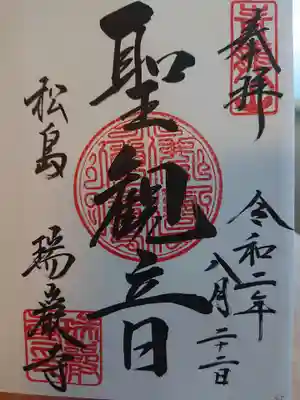 奉拝
令和二年
八月二十二日
聖観音
松島
瑞巌寺